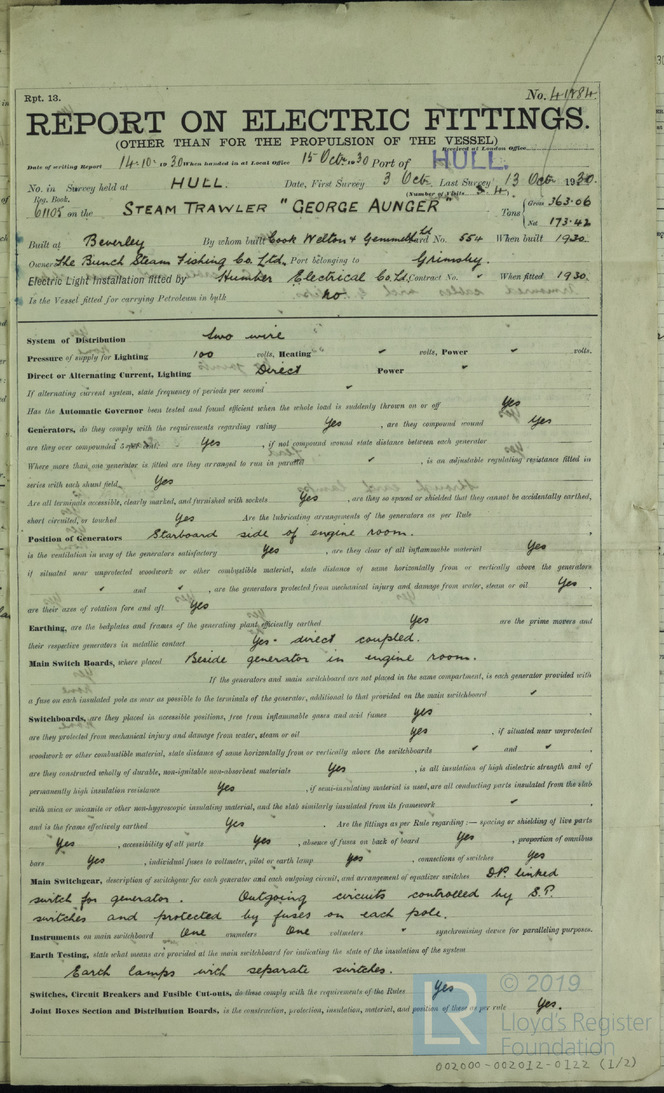 Rpt. 13.
No. 41984.
REPORT ON ELECTRIC FITTINGS.
(OTHER THAN FOR THE PROPULSION OF THE VESSEL)
Received at London Office
Date of writing Report 14.10.1930 When handed in at Local Office 15 Octr. 1930 Port of HULL.
No. in Survey held at HULL. Date, First Survey 3 Oct. Last Survey 13 Oct 1930.
Reg. Book. (Number of Visits 4)
61105 on the STEAM TRAWLER "GEORGE AUNGER" Tons { Gross 363.06
Net 173.42
Built at Beverley By whom built Cook Welton & Gemmell Ltd Yard No. 554 When built 1930
Owners The Bunch Steam Fishing Co. Ltd. Port belonging to Grimsby
Electric Light Installation fitted by Humber Electrical Co. Ltd. Contract No. " When fitted 1930.
Is the Vessel fitted for carrying Petroleum in bulk no.
System of Distribution two wire
Pressure of supply for Lighting 100 volts, Heating volts, Power volts.
Direct or Alternating Current, Lighting Direct Power
If alternating current system, state frequency of periods per second
Has the Automatic Governor been tested and found efficient when the whole load is suddenly thrown on or off Yes
Generators, do they comply with the requirements regarding rating Yes , are they compound wound Yes
are they over compounded 5 per cent. Yes , if not compound wound state distance between each generator
Where more than one generator is fitted are they arranged to run in parallel , is an adjustable regulating resistance fitted in
series with each shunt field Yes
Are all terminals accessible, clearly marked, and furnished with sockets Yes , are they so spaced or shielded that they cannot be accidentally earthed,
short circuited, or touched Yes Are the lubricating arrangements of the generators as per Rule
Position of Generators Starboard side of engine room.
is the ventilation in way of the generators satisfactory Yes , are they clear of all inflammable material Yes
if situated near unprotected woodwork or other combustible material, state distance of same horizontally from or vertically above the generators
" and " , are the generators protected from mechanical injury and damage from water, steam or oil Yes ,
are their axes of rotation fore and aft Yes
Earthing, are the bedplates and frames of the generating plant efficiently earthed Yes are the prime movers and
their respective generators in metallic contact Yes - direct coupled.
Main Switch Boards, where placed Beside generator in engine room.
If the generators and main switchboard are not placed in the same compartment, is each generator provided with
a fuse on each insulated pole as near as possible to the terminals of the generator, additional to that provided on the main switchboard
Switchboards, are they placed in accessible positions, free from inflammable gases and acid fumes yes
are they protected from mechanical injury and damage from water, steam or oil yes , if situated near unprotected
woodwork or other combustible material, state distance of same horizontally from or vertically above the switchboards " and " ,
are they constructed wholly of durable, non-ignitable non-absorbent materials Yes , is all insulation of high dielectric strength and of
permanently high insulation resistance Yes , if semi-insulating material is used, are all conducting parts insulated from the slab
with mica or micanite or other non-hygroscopic insulating material, and the slab similarly insulated from its framework " ,
and is the frame effectively earthed Yes . Are the fittings as per Rule regarding :— spacing or shielding of live parts
Yes , accessibility of all parts Yes , absence of fuses on back of board Yes , proportion of omnibus
bars Yes , individual fuses to voltmeter, pilot or earth lamp yes , connections of switches Yes
Main Switchgear, description of switchgear for each generator and each outgoing circuit, and arrangement of equalizer switches DP linked
switch for generator. Outgoing circuits controlled by S.P.
switches and protected by fuses on each pole.
Instruments on main switchboard One ammeters One voltmeters " synchronising device for paralleling purposes.
Earth Testing, state what means are provided at the main switchboard for indicating the state of the insulation of the system
Earth lamps with separate switches.
Switches, Circuit Breakers and Fusible Cut-outs, do these comply with the requirements of the Rules Yes
Joint Boxes Section and Distribution Boards, is the construction, protection, insulation, material, and position of these as per rule Yes.
LR
© 2019
Lloyd's Register
Foundation
002000-002012-0122 (1/2)